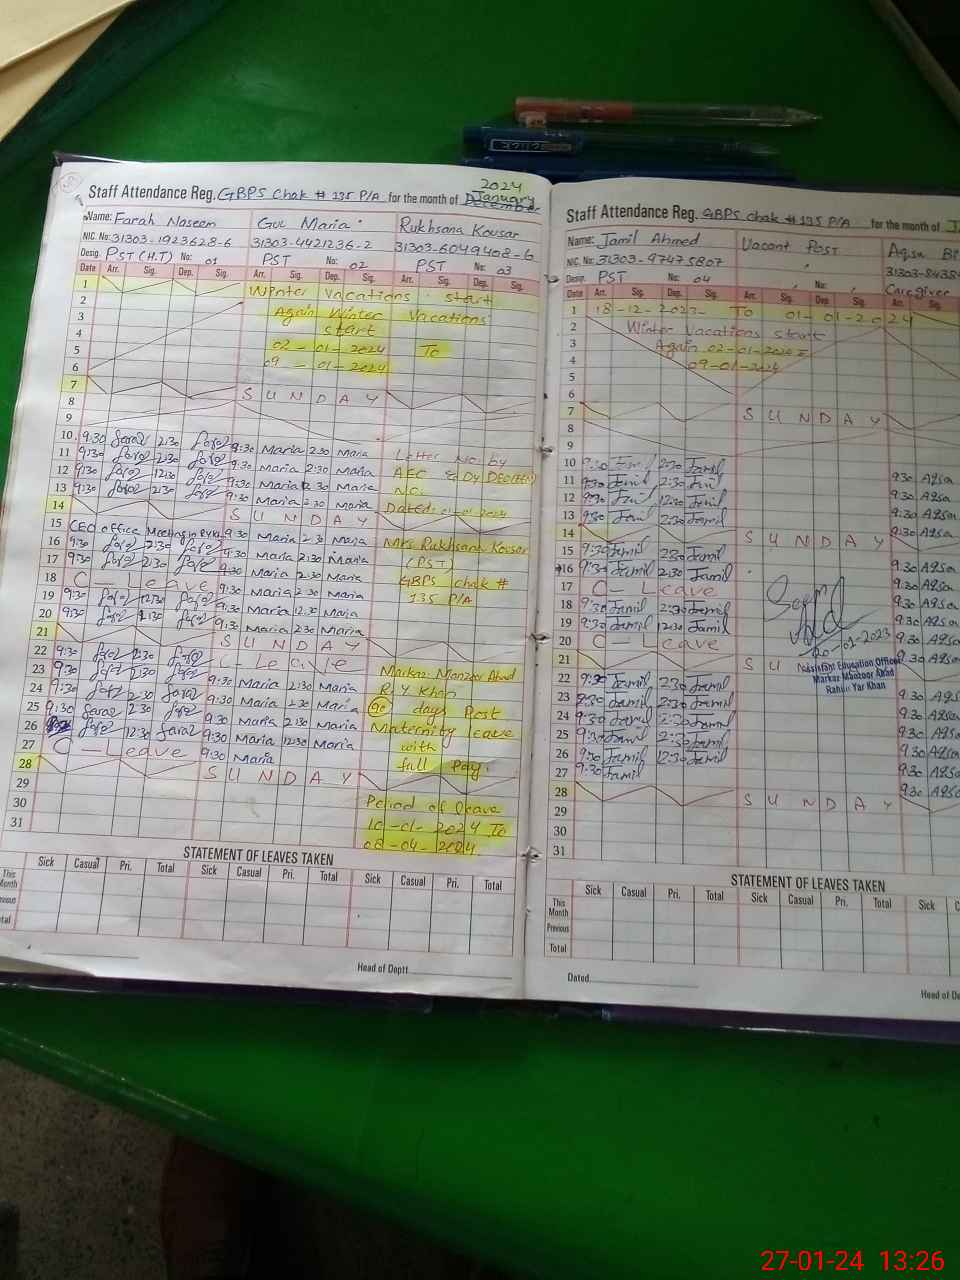 2024
Staff Attendance Reg. GBPS Chak # 135 P/A for the month of January
Name: Farah Naseem Gul Maria Rukhsana Kousar
NIC. No: 31303-1923628-6 31303-4421236-2 31303-6049408-6
Desig. PST (H.T) No: 01 PST No: 02 PST No: 03
Date Arr. Sig. Dep. Sig. Arr. Sig. Dep. Sig. Arr. Sig. Dep. Sig.
1 Winter Vacations start
2
3 Again Winter Vacations
4 start
5 02-01-2024 To
6 09-01-2024
7 SUNDAY
8
9
10 9:30 2:30 9:30 Maria 2:30 Maria Letter No. by
11 9:30 2:30 9:30 Maria 2:30 Maria AEC & Dy DEO(W)
12 9:30 12:30 9:30 Maria 2:30 Maria NO.
13 9:30 2:30 9:30 Maria 2:30 Maria Dated: 01-01-2024
14 SUNDAY
15 CEO office Meeting in 9:30 Maria 2:30 Maria Mrs Rukhsana Kousar
16 9:30 2:30 9:30 Maria 2:30 Maria (PST)
17 9:30 2:30 9:30 Maria 2:30 Maria GBPS chak #
18 C-Leave 9:30 Maria 2:30 Maria 135 P/A
19 9:30 12:30 9:30 Maria 12:30 Maria
20 9:30 9:30 Maria 2:30 Maria
21 SUNDAY
22 9:30 2:30 C-Leave Markaz Manzoor Abad
23 9:30 2:30 9:30 Maria 2:30 Maria R Y Khan
24 9:30 2:30 9:30 Maria 2:30 Maria 90 days Post
25 9:30 2:30 9:30 Maria 2:30 Maria Maternity leave
26 12:30 9:30 Maria 12:30 Maria with
27 C-Leave 9:30 Maria full Pay.
28 SUNDAY
29
30 Period of leave
31 10-01-2024 To
08-04-2024
STATEMENT OF LEAVES TAKEN
Sick Casual Pri. Total Sick Casual Pri. Total Sick Casual Pri. Total
This Month
Head of Deptt
Staff Attendance Reg. GBPS Chak # 135 P/A for the month of
Name: Jamil Ahmed Vacant Post Aqsa
NIC. No: 31303-97475807 31303-
Desig. PST 04 No: Caregiver
Date Arr. Sig. Dep. Sig. Arr. Sig. Dep Sig. Arr. Sig.
1 18-12-2023 To 01-01-2024
2 Winter Vacations start
3 Again 02-01-2024
4 09-01-2024
5
6
7 SUNDAY
8
9
10 9:30 Jamil 2:30 Jamil
11 9:30 Jamil 2:30 Jamil 9:30 Aqsa
12 9:30 Jamil 12:30 Jamil 9:30 Aqsa
13 9:30 Jamil 2:30 Jamil 9:30 Aqsa
14 SUNDAY 9:30 Aqsa
15 9:30 Jamil 2:30 Jamil
16 9:30 Jamil 2:30 Jamil 9:30 Aqsa
17 C-Leave 9:30 Aqsa
18 9:30 Jamil 2:30 Jamil 9:30 Aqsa
19 9:30 Jamil 12:30 Jamil 9:30 Aqsa
20 C Leave 20-01-2023 9:30 Aqsa
21 SU Assistant Education Officer 9:30 Aqsa
Markaz Manzoor Abad
Rahim Yar Khan
22 9:30 Jamil 2:30 Jamil
23 9:30 Jamil 2:30 Jamil 9:30 Aqsa
24 9:30 Jamil 2:30 Jamil 9:30 Aqsa
25 9:30 Jamil 2:30 Jamil 9:30 Aqsa
26 9:30 Jamil 12:30 Jamil 9:30 Aqsa
27 9:30 Jamil 9:30 Aqsa
28 SUNDAY 9:30 Aqsa
29
30
31
STATEMENT OF LEAVES TAKEN
Sick Casual Pri. Total Sick Casual Pri. Total Sick
This Month
Previous
Total
Dated
Head of
27-01-24 13:26